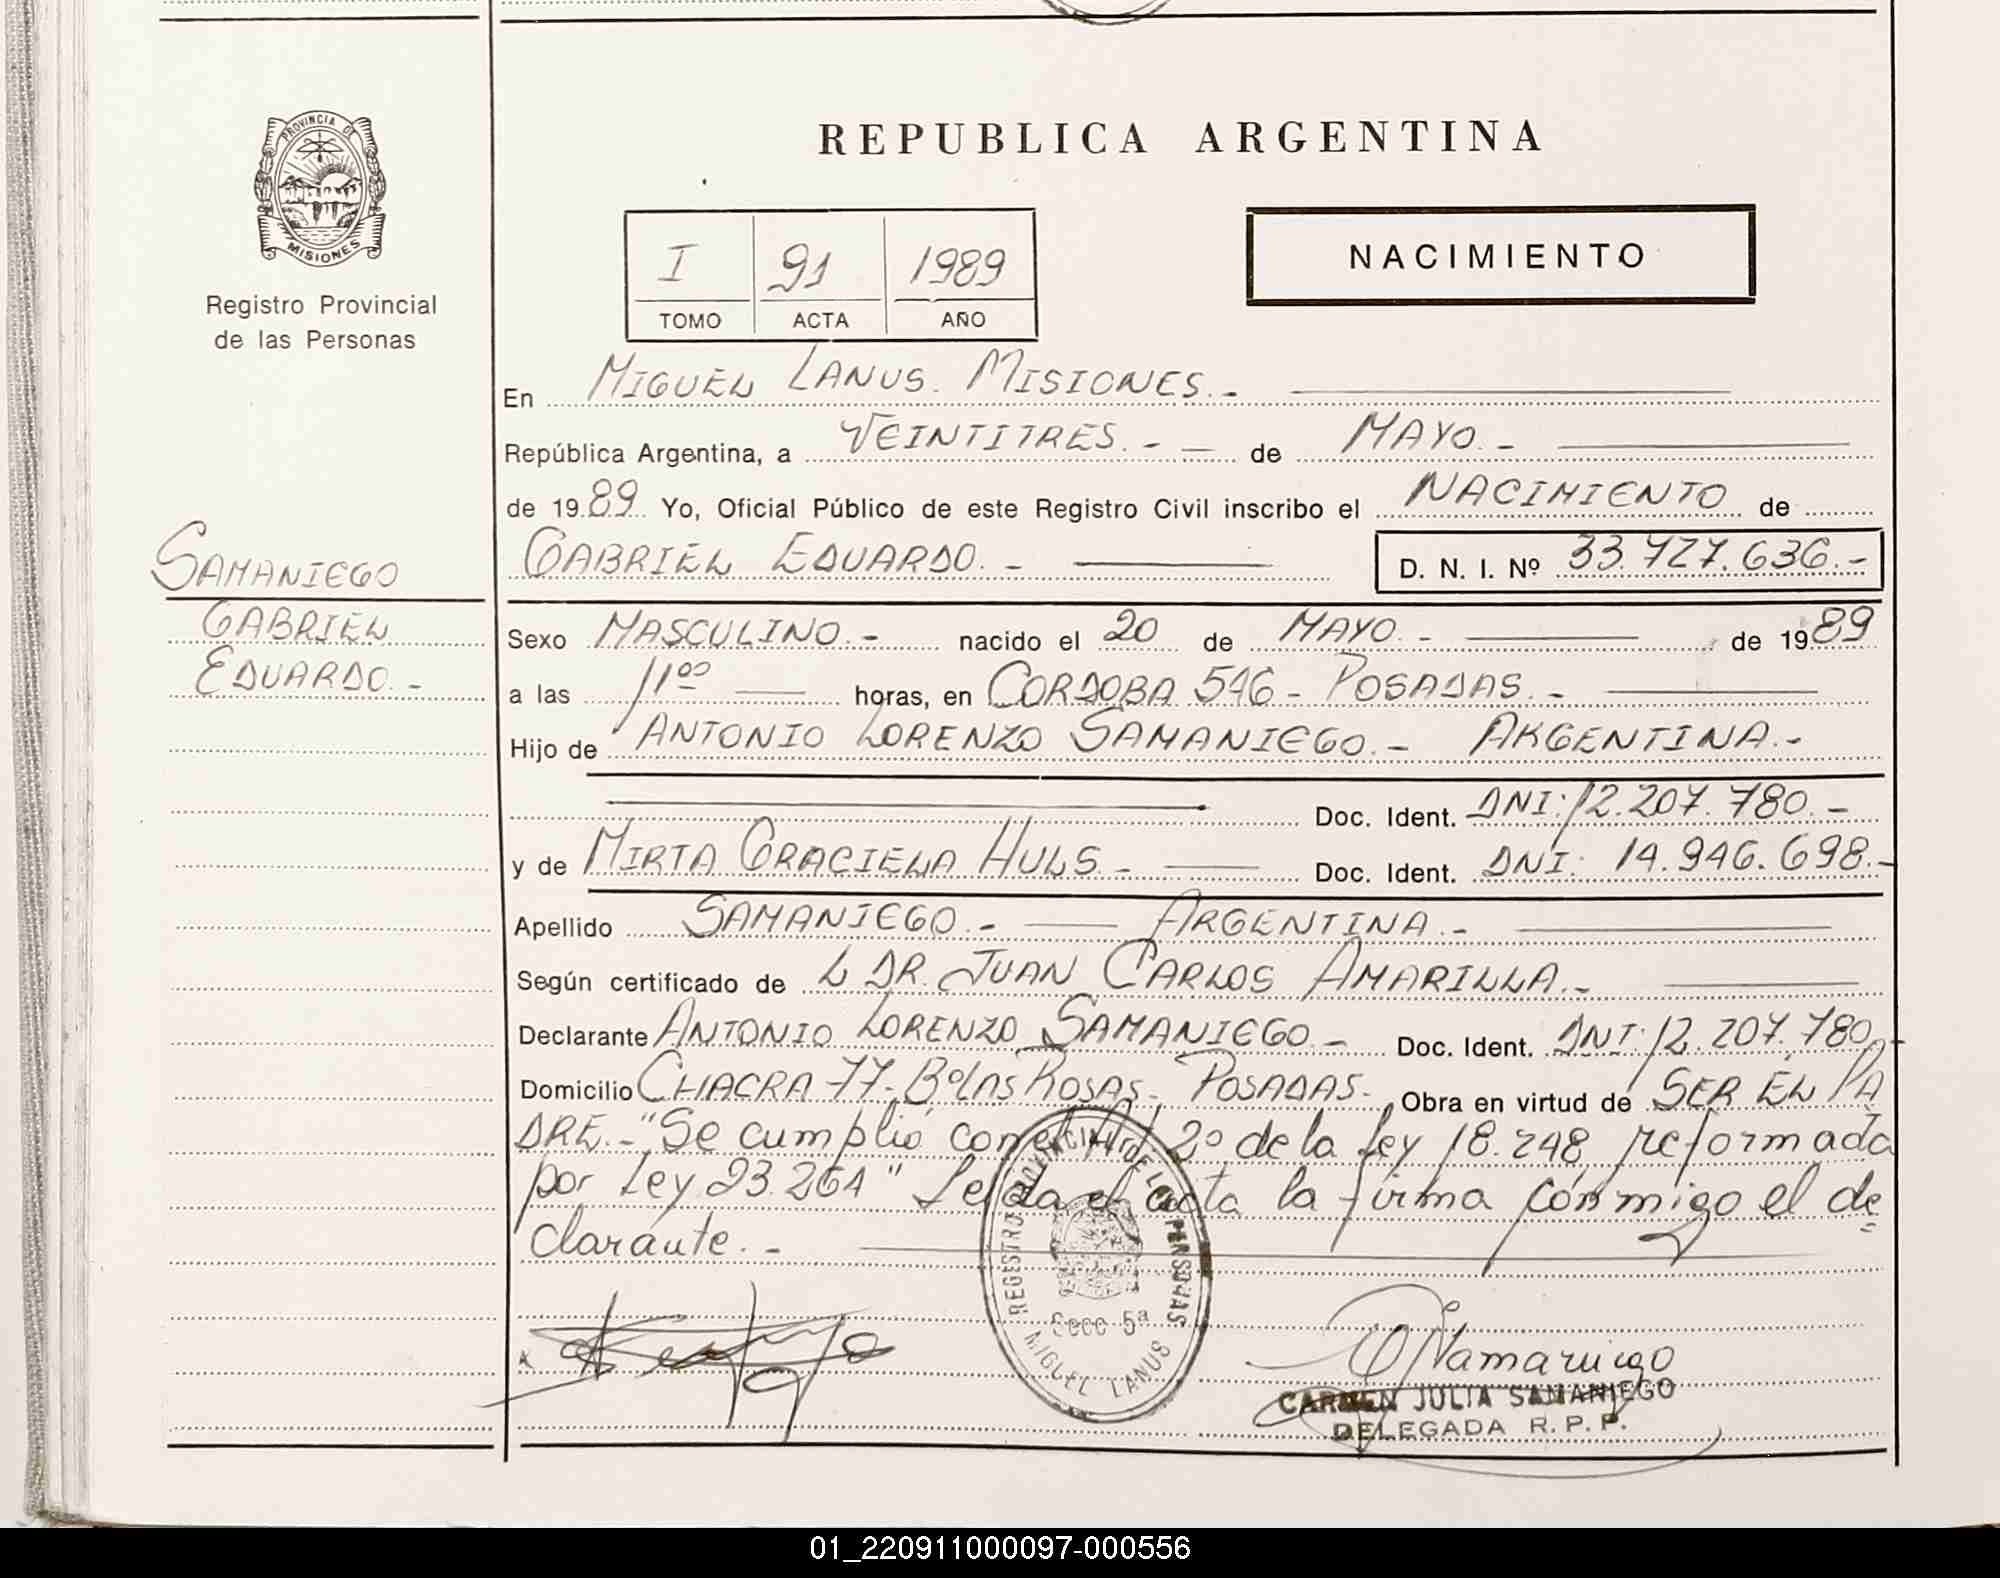 REPUBLICA ARGENTINA
PROVINCIA DE
MISIONES
Registro Provincial
de las Personas
I 91 1989
TOMO ACTA AÑO
NACIMIENTO
En MIGUEL LANUS. MISIONES.-
República Argentina, a VEINTITRES.- de MAYO.-
de 1989 Yo, Oficial Público de este Registro Civil inscribo el NACIMIENTO de
SAMANIEGO
GABRIEL
EDUARDO.-
GABRIEL EDUARDO.- D. N. I. Nº 33.727.636.-
Sexo MASCULINO.- nacido el 20 de MAYO.- de 1989
a las 11⁰⁰ horas, en CORDOBA 546- POSADAS.-
Hijo de ANTONIO LORENZO SAMANIEGO.- ARGENTINA.-
Doc. Ident. DNI: 12.207.780.-
y de MIRTA GRACIELA HULS.- Doc. Ident. DNI: 14.946.698.-
Apellido SAMANIEGO.- ARGENTINA.-
Según certificado de L DR. JUAN CARLOS AMARILLA.-
Declarante ANTONIO LORENZO SAMANIEGO.- Doc. Ident. DNI: 12.207.780
Domicilio CHACRA 77- Bº LAS ROSAS- POSADAS- Obra en virtud de SER EL PA
DRE.- "Se cumplió con el Art 2º de la Ley 18.248, reformada
por Ley 23.264" Leída el acta la firma conmigo el de=
clarante.-
REGISTRO PROVINCIAL DE LAS PERSONAS
Secc 5ª
MIGUEL LANUS
CARMEN JULIA SAMANIEGO
DELEGADA R. P. P.
01_220911000097-000556